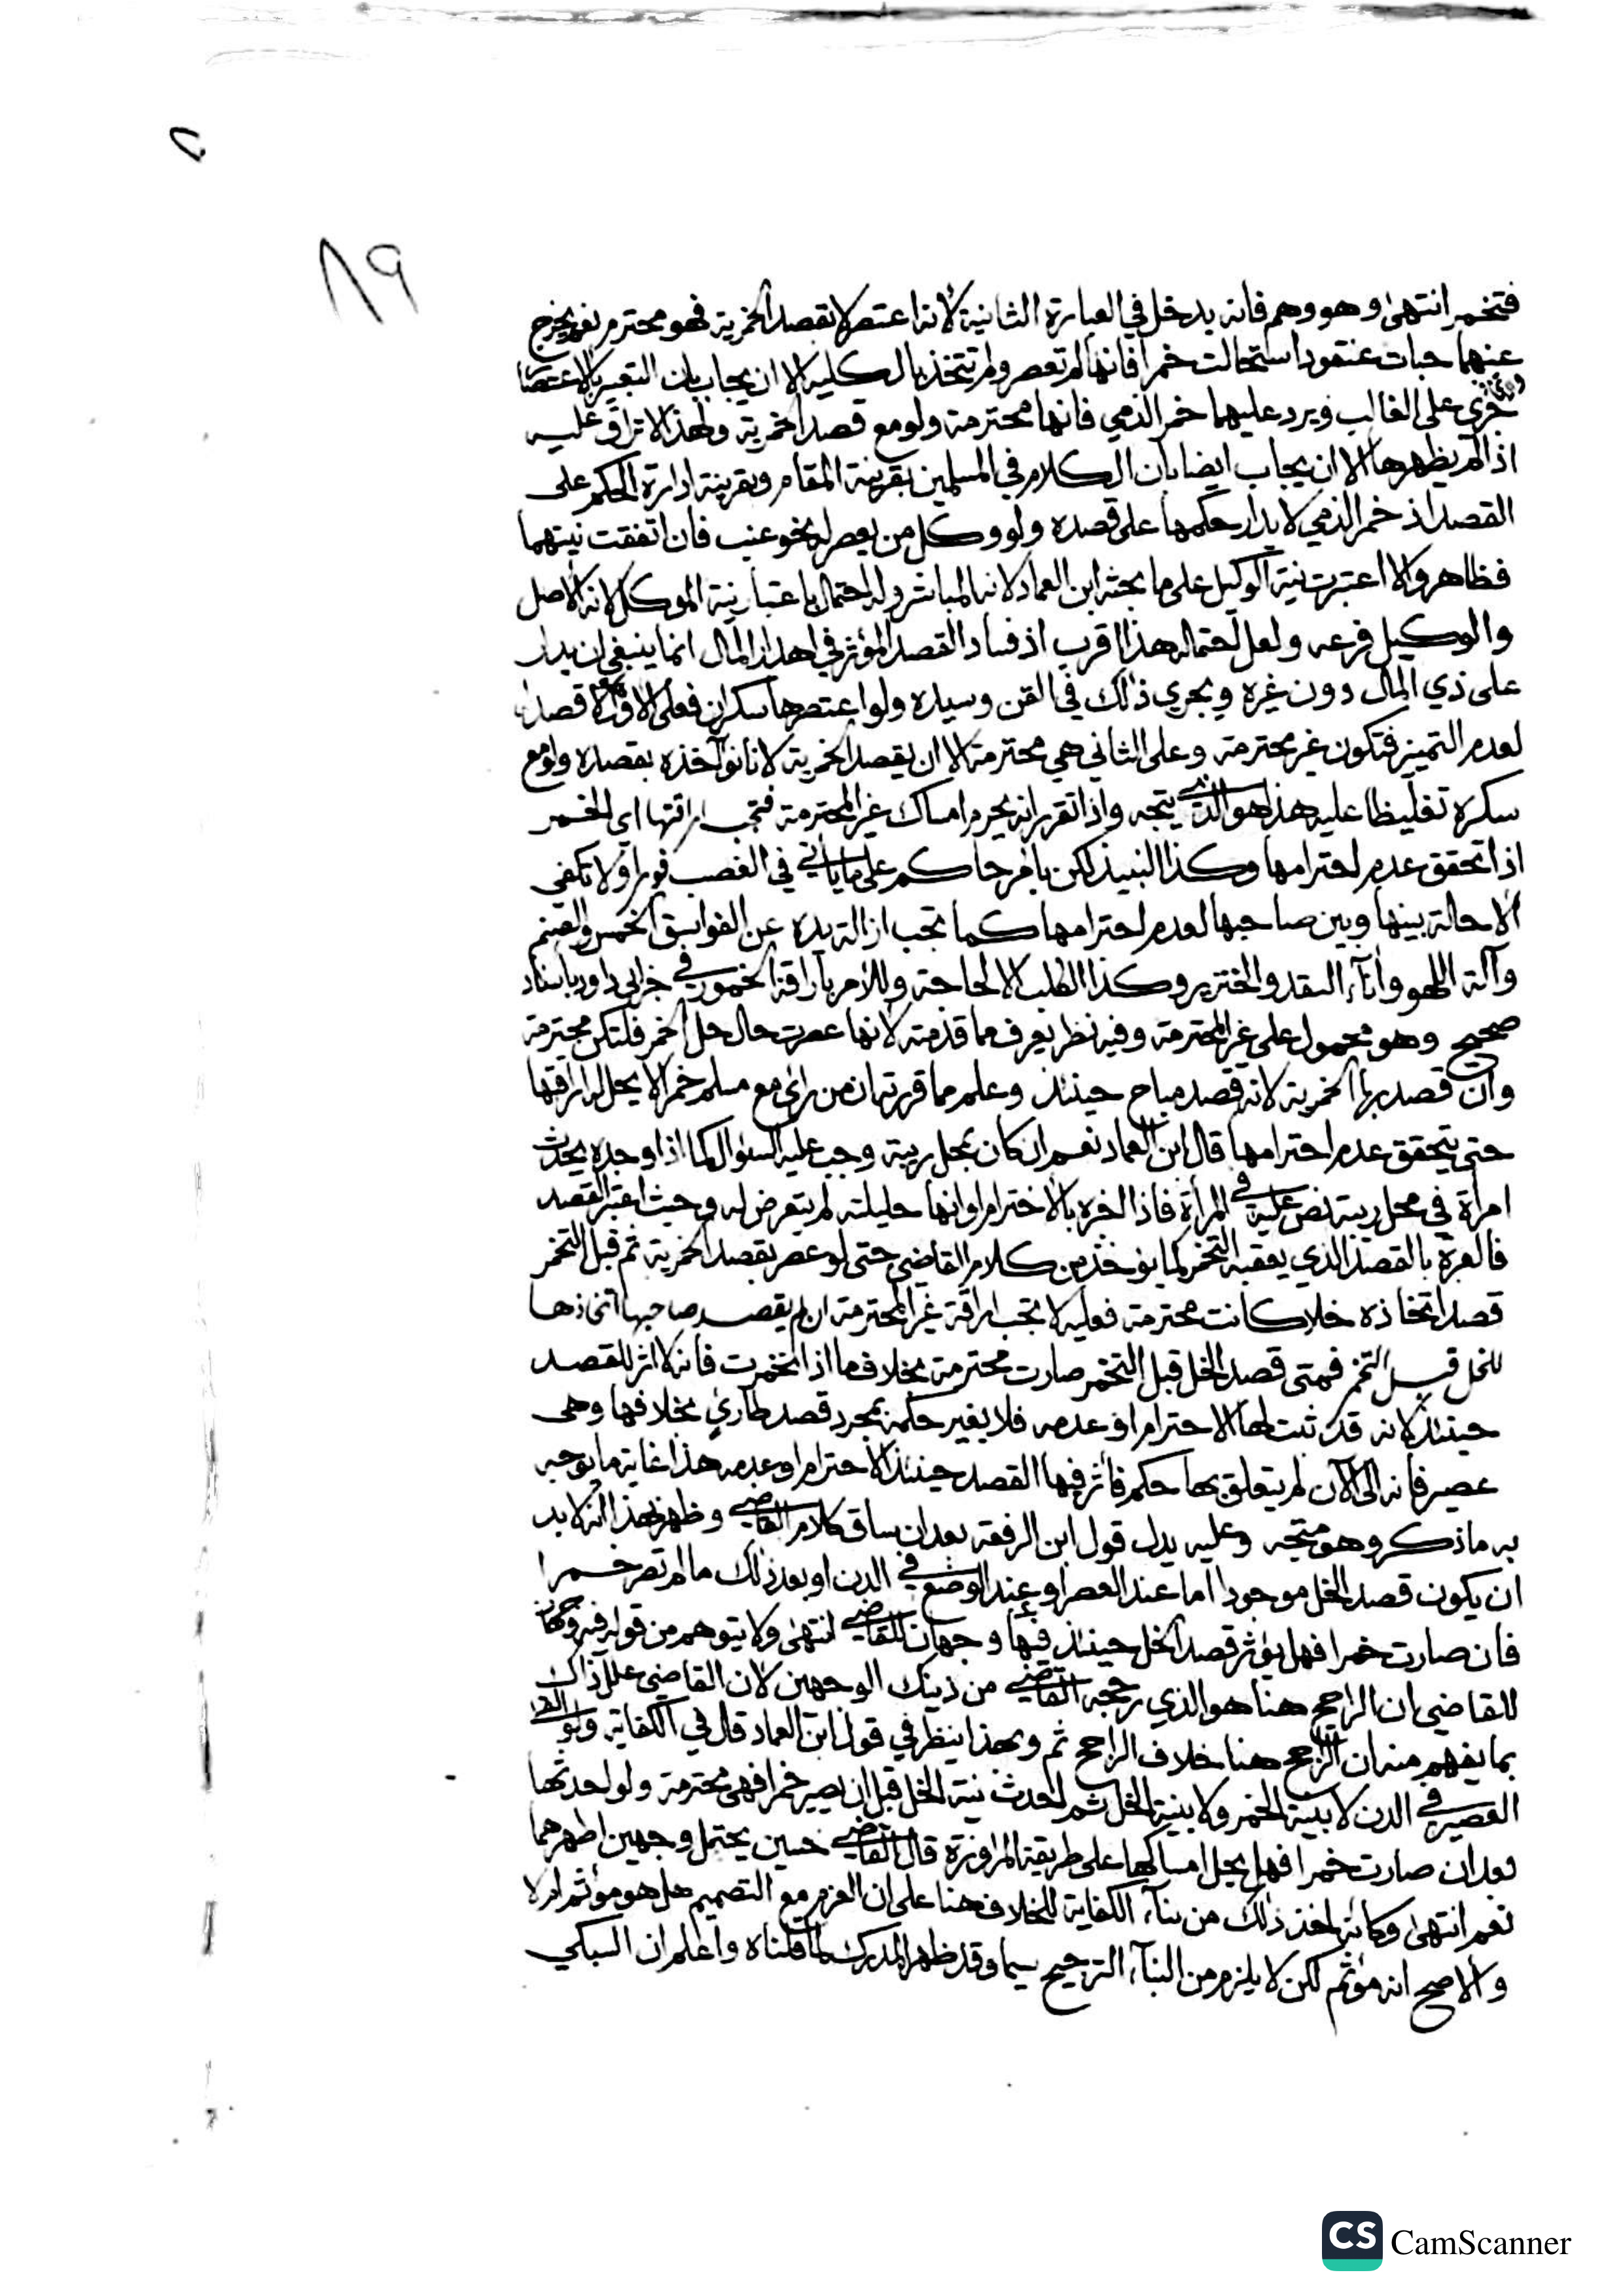 ٨٩
فتخمر انتهى وهو وهم فانه يدخل في العبارة الثانية لانه اعتصر لا بقصد الخمرية فهو محترم نعم يخرج
عنهما حبات عنقود استحالت خمرا فانها لم تعصر ولم تتخذ بالكلية الا ان يجاب بان التعبير بالاعتصار
جرى على الغالب ويرد عليهما خمر الذمي فانها محترمة ولو مع قصد الخمرية ولهذا لا تراق عليه
اذا لم يظهرها الا ان يجاب ايضا بان الكلام في المسلمين بقرينة المقام وبقرينة ادارة الحكم على
القصد اذ خمر الذمي لا يدار حكمها على قصده ولو وكل من يعصر له نحو عنب فان اتفقت نيتهما
فظاهر والا اعتبرت نية الوكيل على ما بحثه ابن العماد لانه المباشر وله احتمال باعتبار نية الموكل لانه الاصل
والوكيل فرعه ولعل احتماله هذا اقرب اذ فساد القصد المؤثر في اهدار المال انما ينبغي ان يدار
على ذي المال دون غيره ويجري ذلك في القن وسيده ولو اعتصرها سكران فعلى الاول لا قصد
لعدم التمييز فتكون غير محترمة وعلى الثاني هي محترمة الا ان يقصد الخمرية لانا نؤآخذه بقصده ولو مع
سكره تغليظا عليه هذا هو الذي يتجه واذا تقرر انه يحرم امساك غير المحترمة فتجب اراقتها اي الخمر
اذا تحقق عدم احترامها وكذا النبيذ لكن بامر حاكم على ما يأتي في الغصب فورا ولا تكفي
الاحالة بينها وبين صاحبها لعدم احترامها كما تجب ازالة يده عن الفواسق الخمس والصنم
وآلة اللهو وانآء النقد والخنزير وكذا الكلب الا لحاجة وللامر باراقة الخمور في خبر ابي داود باسناد
صحيح وهو محمول على غير المحترمة وفيه نظر يعرف مما قدمته لانها عصرت حال حل الخمر فلتكن محترمة
وان قصد بها الخمرية لانه قصد مباح حينئذ وعلم مما قررته ان من رأى مع مسلم خمرا لا يحل له اراقتها
حتى يتحقق عدم احترامها قال ابن العماد نعم ان كان بمحل ريبة وجب عليه السؤال كما اذا وجده يحدث
امراة في محل ريبة نص عليه في المرأة فاذا اخبره بالاحترام او انها حليلته لم يتعرض له وحيث اعتبر القصد
فالعبرة بالقصد الذي يعقبه التخمر كما يؤخذ من كلام القاضي حتى لو عصر بقصد الخمرية ثم قبل التخمر
قصد اتخاذه خلا كانت محترمة فعليه لا تجب اراقة غير المحترمة ان لم يقصد صاحبها اتخاذها
للخل قبل التخمر فمتى قصد الخل قبل التخمر صارت محترمة بخلاف ما اذا تخمرت فانه لا اثر للقصد
حينئذ لانه قد ثبت لها الاحترام او عدمه فلا يغير حكمه بمجرد قصد طارئ بخلافها وهي
عصير فانه الى الآن لم يتعلق بها حكم فأثر فيها القصد حينئذ الاحترام او عدمه هذا غاية ما يوجه
به ما ذكر وهو متجه وعليه يدل قول ابن الرفعة بعد ان ساق كلام القاضي وظهر بهذا انه لا بد
ان يكون قصد الخل موجودا اما عند العصر او عند الوضع في الدن او بعد ذلك ما لم تصر خمرا
فان صارت خمرا فهل يؤثر قصد الخل حينئذ فيها وجهان للقاضي انتهى ولا يتوهم من قوله فيه وجهان
للقاضي ان الراجح هنا هو الذي رجحه القاضي من ذينك الوجهين لان القاضي علل ذلك
بما يفهم منه ان الراجح هنا خلاف الراجح ثم وبهذا ينظر في قول ابن العماد قال في الكفاية ولو القى
العصير في الدن لا بنية الخمر ولا بنية الخل ثم احدث نية الخل قبل ان يصير خمرا فهي محترمة ولو احدثها
بعد ان صارت خمرا فهل يحل امساكها على طريقة المراوزة قال القاضي حسين يحتمل وجهين اظهرهما
نعم انتهى وكانه اخذ ذلك من بنآء الكفاية للخلاف هنا على ان العزم مع التصميم هل هو مؤثم ام لا
والاصح انه مؤثم لكن لا يلزم من البنآء الترجيح سيما وقد ظهر المدرك لما قلناه واعلم ان السبكي
CS CamScanner